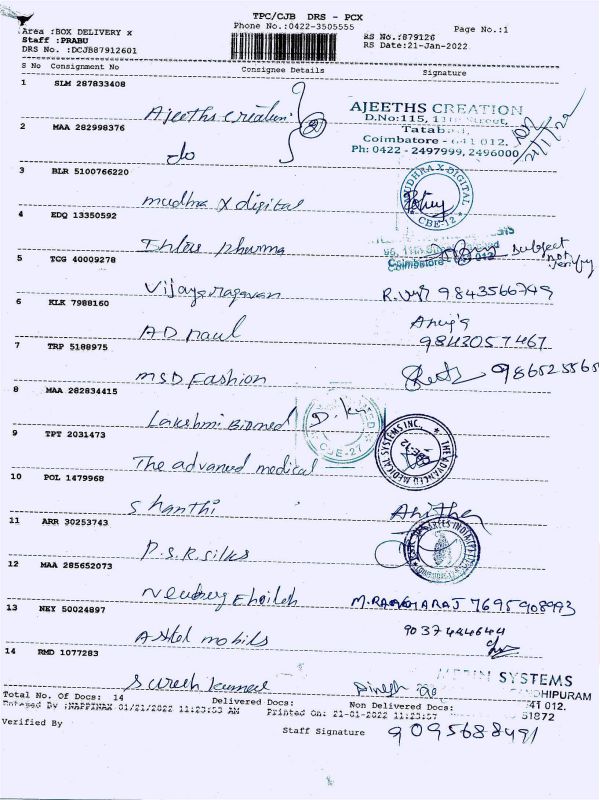 TPC/CJB DRS - PCX
Area :BOX DELIVERY x
Phone No.:0422-3505555
Page No.:1
Staff :PRABU
RS No.:879126
DRS No. :DCJB87912601
RS Date:21-Jan-2022
S No Consignment No Consignee Details Signature
1 SLM 287833408
Ajeeths creation
AJEETHS CREATION
D.No:115, 11th Street,
Tatabad,
Coimbatore - 641 012.
Ph: 0422 - 2497999, 2496000
21/1/22
2 MAA 282998376
do
3 BLR 5100766220
mudhra x digital
MUDHRA X DIGITAL
CBE-12
4 EDQ 13350592
pharma
Coimbatore 012
subject
not
verify
5 TCG 40009278
Vijayaragavan
9843566749
6 KLK 7988160
A D Paul
9843057467
7 TRP 5188975
MSD Fashion
986525565
8 MAA 282834415
Lakshmi Biomed
CBE-27
9 TPT 2031473
The advanced medical
THE ADVANCED MEDICAL SYSTEMS INC.
CBE-12
10 POL 1479968
Shanthi
Anitha
11 ARR 30253743
P.S.R. Silks
12 MAA 285652073
7695908993
13 NEY 50024897
mobils
9037444644
14 RMD 1077283
Suresh kumar
Dinesh
SYSTEMS
GANDHIPURAM
641 012.
51872
Total No. Of Docs: 14 Delivered Docs: Non Delivered Docs:
Entered By :NAPPINAX 01/21/2022 11:23:53 AM Printed On: 21-01-2022 11:23:57
Verified By
Staff Signature
9095688491